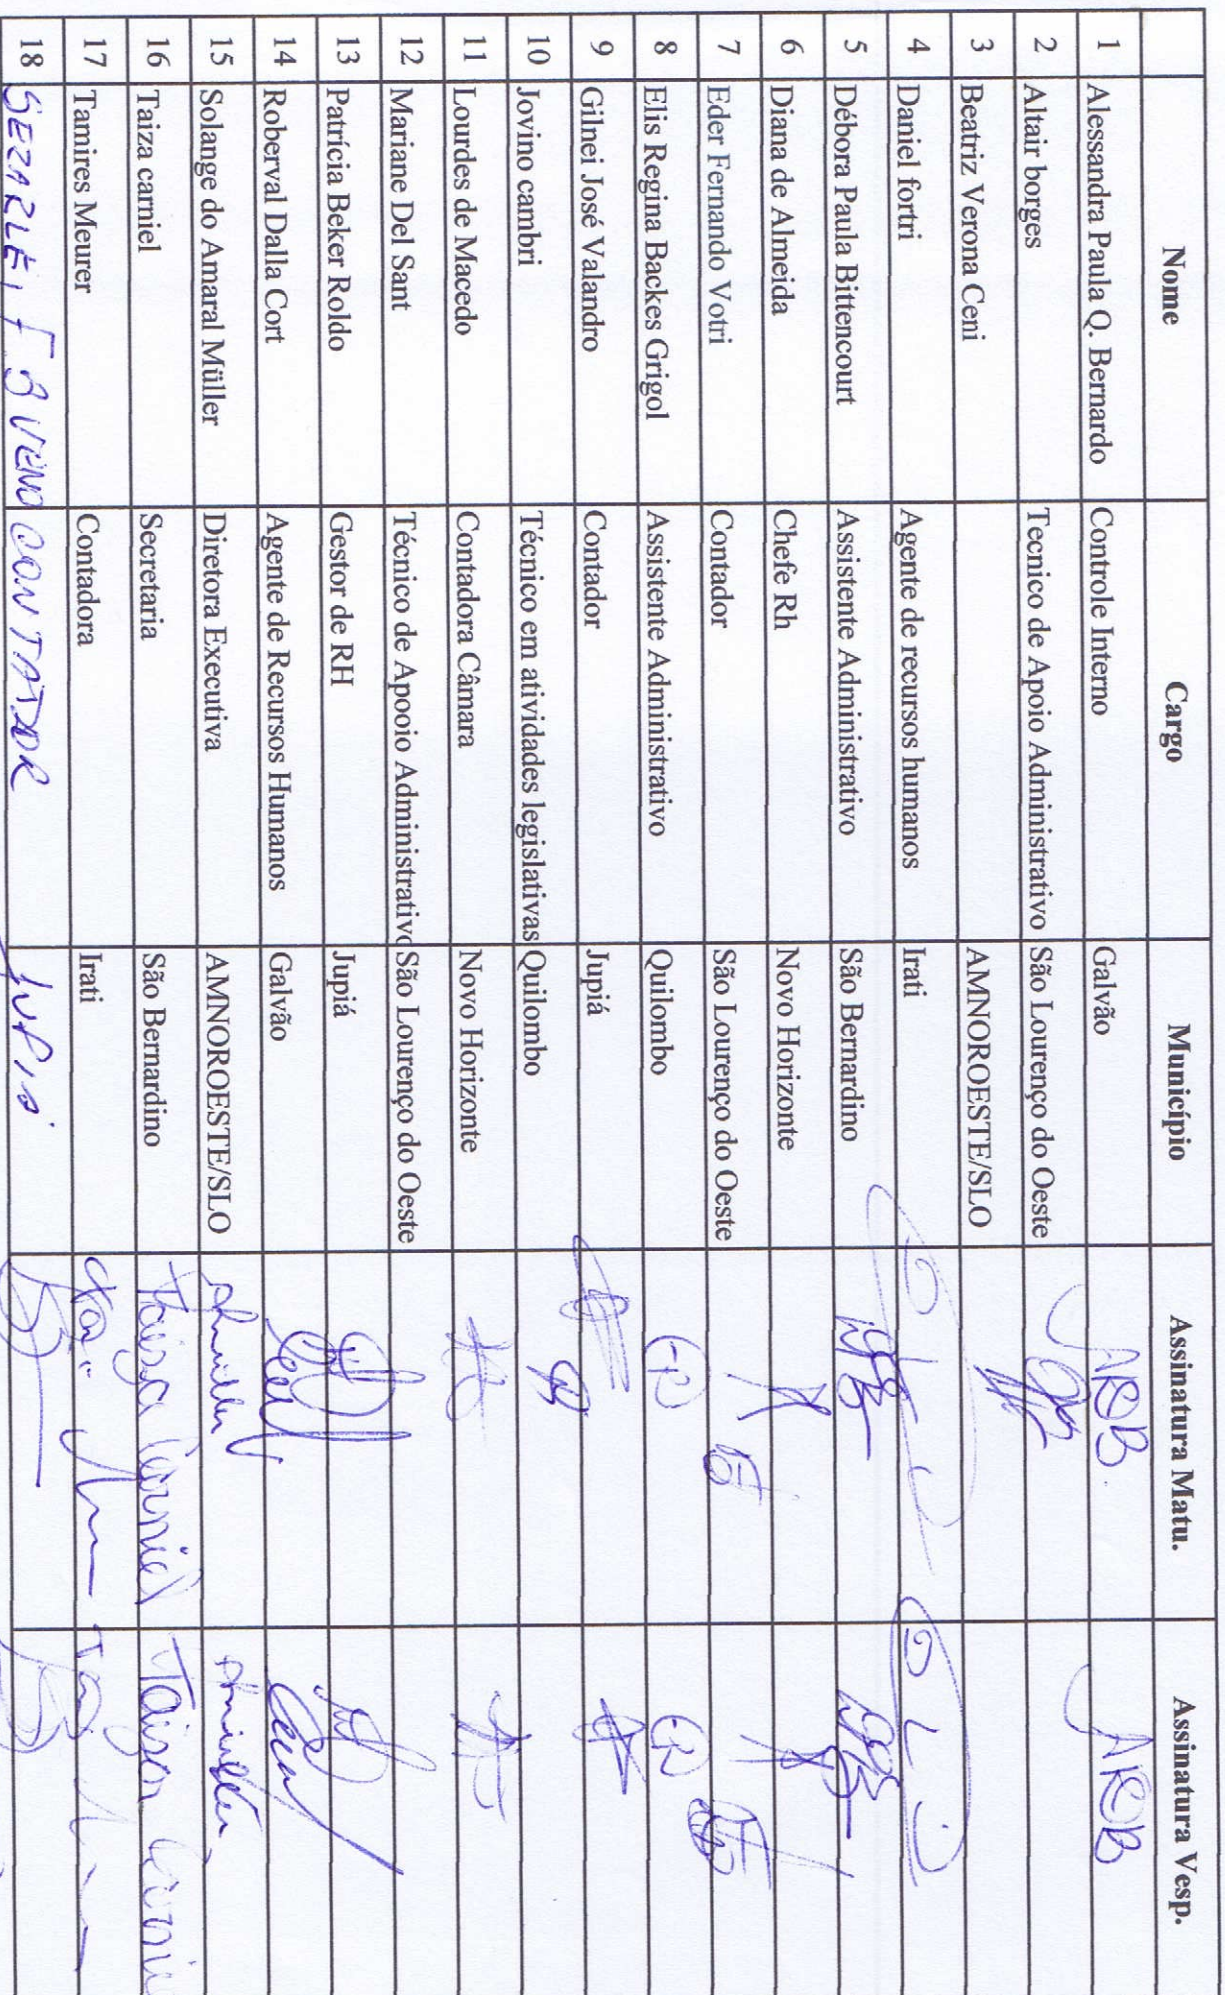 Nome Cargo Município Assinatura Matu. Assinatura Vesp.
1 Alessandra Paula Q. Bernardo Controle Interno Galvão APQB. APQB
2 Altair borges Tecnico de Apoio Administrativo São Lourenço do Oeste
3 Beatriz Verona Ceni AMNOROESTE/SLO
4 Daniel fortri Agente de recursos humanos Irati
5 Débora Paula Bittencourt Assistente Administrativo São Bernardino
6 Diana de Almeida Chefe Rh Novo Horizonte
7 Eder Fernando Votri Contador São Lourenço do Oeste
8 Elis Regina Backes Grigol Assistente Administrativo Quilombo
9 Gilnei José Valandro Contador Jupiá
10 Jovino cambri Técnico em atividades legislativas Quilombo
11 Lourdes de Macedo Contadora Câmara Novo Horizonte
12 Mariane Del Sant Técnico de Apooio Administrativo São Lourenço do Oeste
13 Patrícia Beker Roldo Gestor de RH Jupiá
14 Roberval Dalla Cort Agente de Recursos Humanos Galvão
15 Solange do Amaral Müller Diretora Executiva AMNOROESTE/SLO
16 Taiza carniel Secretaria São Bernardino Taisa Carniel Taisa Carnie
17 Tamires Meurer Contadora Irati
18 F BUENO CONTADOR JUPIÁ